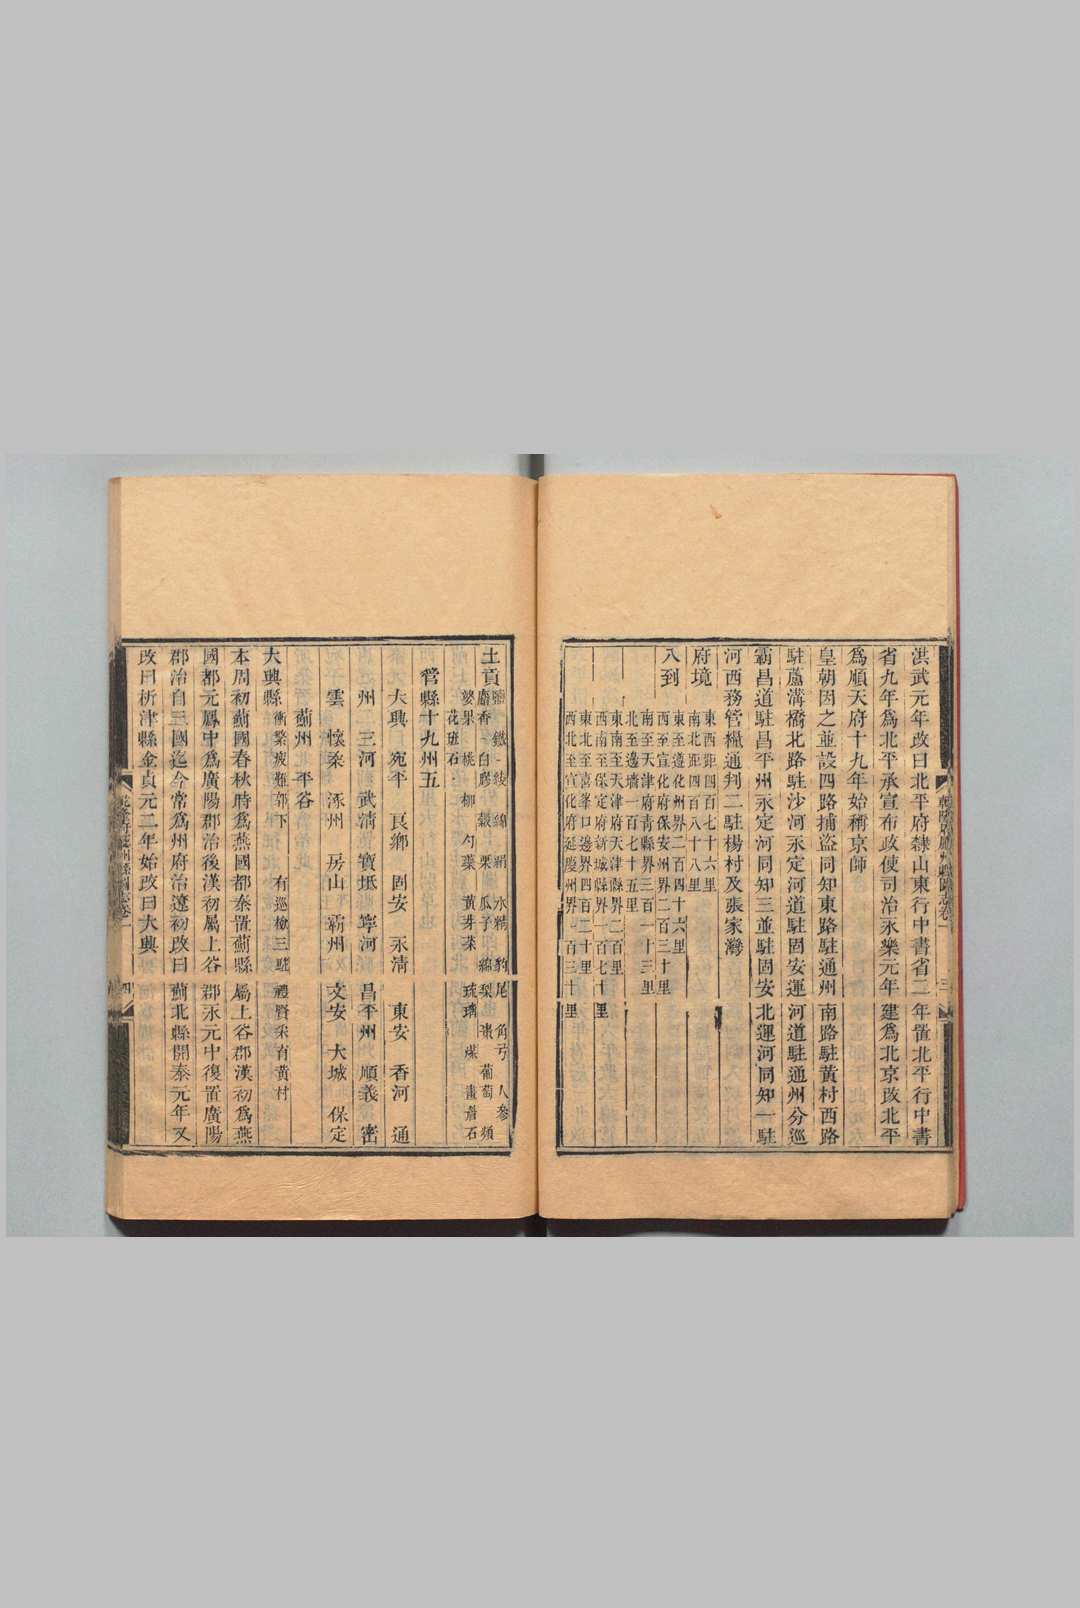 洪武元年改曰北平府隸山東行中書省二年置北平行中書
省九年爲北平承宣布政使司治永樂元年建爲北京改北平
爲順天府十九年始稱京師
皇朝因之並設四路捕盜同知東路駐通州南路駐黄村西路
駐蘆溝橋北路駐沙河永定河道駐固安運河道駐通州分巡
霸昌道駐昌平州永定河同知三並駐固安北運河同知一駐
河西務管糧通判二駐楊村及張家灣
府境
東西距四百七十六里
南北距四百八十八里
八到
東至遵化州界二百四十六里
西至宣化府保安州界二百三十里
南至天津府青縣界三百一十三里
北至邊墻一百七十五里
東南至天津府天津縣界二百里
西南至保定府新城縣界一百七十里
東北至喜峯口邊界四百二十里
西北至宣化府延慶州界一百三十里
土貢
鹽 鐵 綾 綿 絹 水精 豹尾 角弓 人參
麝香 白膠 穀 栗 瓜子 綿梨 棗 葡萄 頻
婆果 桃 柳 勺藥 黄芽菜 琉璃 煤 畫眉石
花班石
管縣十九州五
大興 宛平 良鄉 固安 永清 東安 香河 通
州 三河 武清 寶坻 寧河 昌平州 順義 密
雲 懷柔 涿州 房山 霸州 文安 大城 保定
薊州 平谷
大興縣 衝繁疲難部下 有巡檢三駐禮賢采育黄村
本周初薊國春秋時爲燕國都秦置薊縣屬上谷郡漢初爲燕
國都元鳳中爲廣陽郡治後漢初屬上谷郡永元中復置廣陽
郡治自三國迄今常爲州府治遼初改曰薊北縣開泰元年又
改曰析津縣金貞元二年始改曰大興